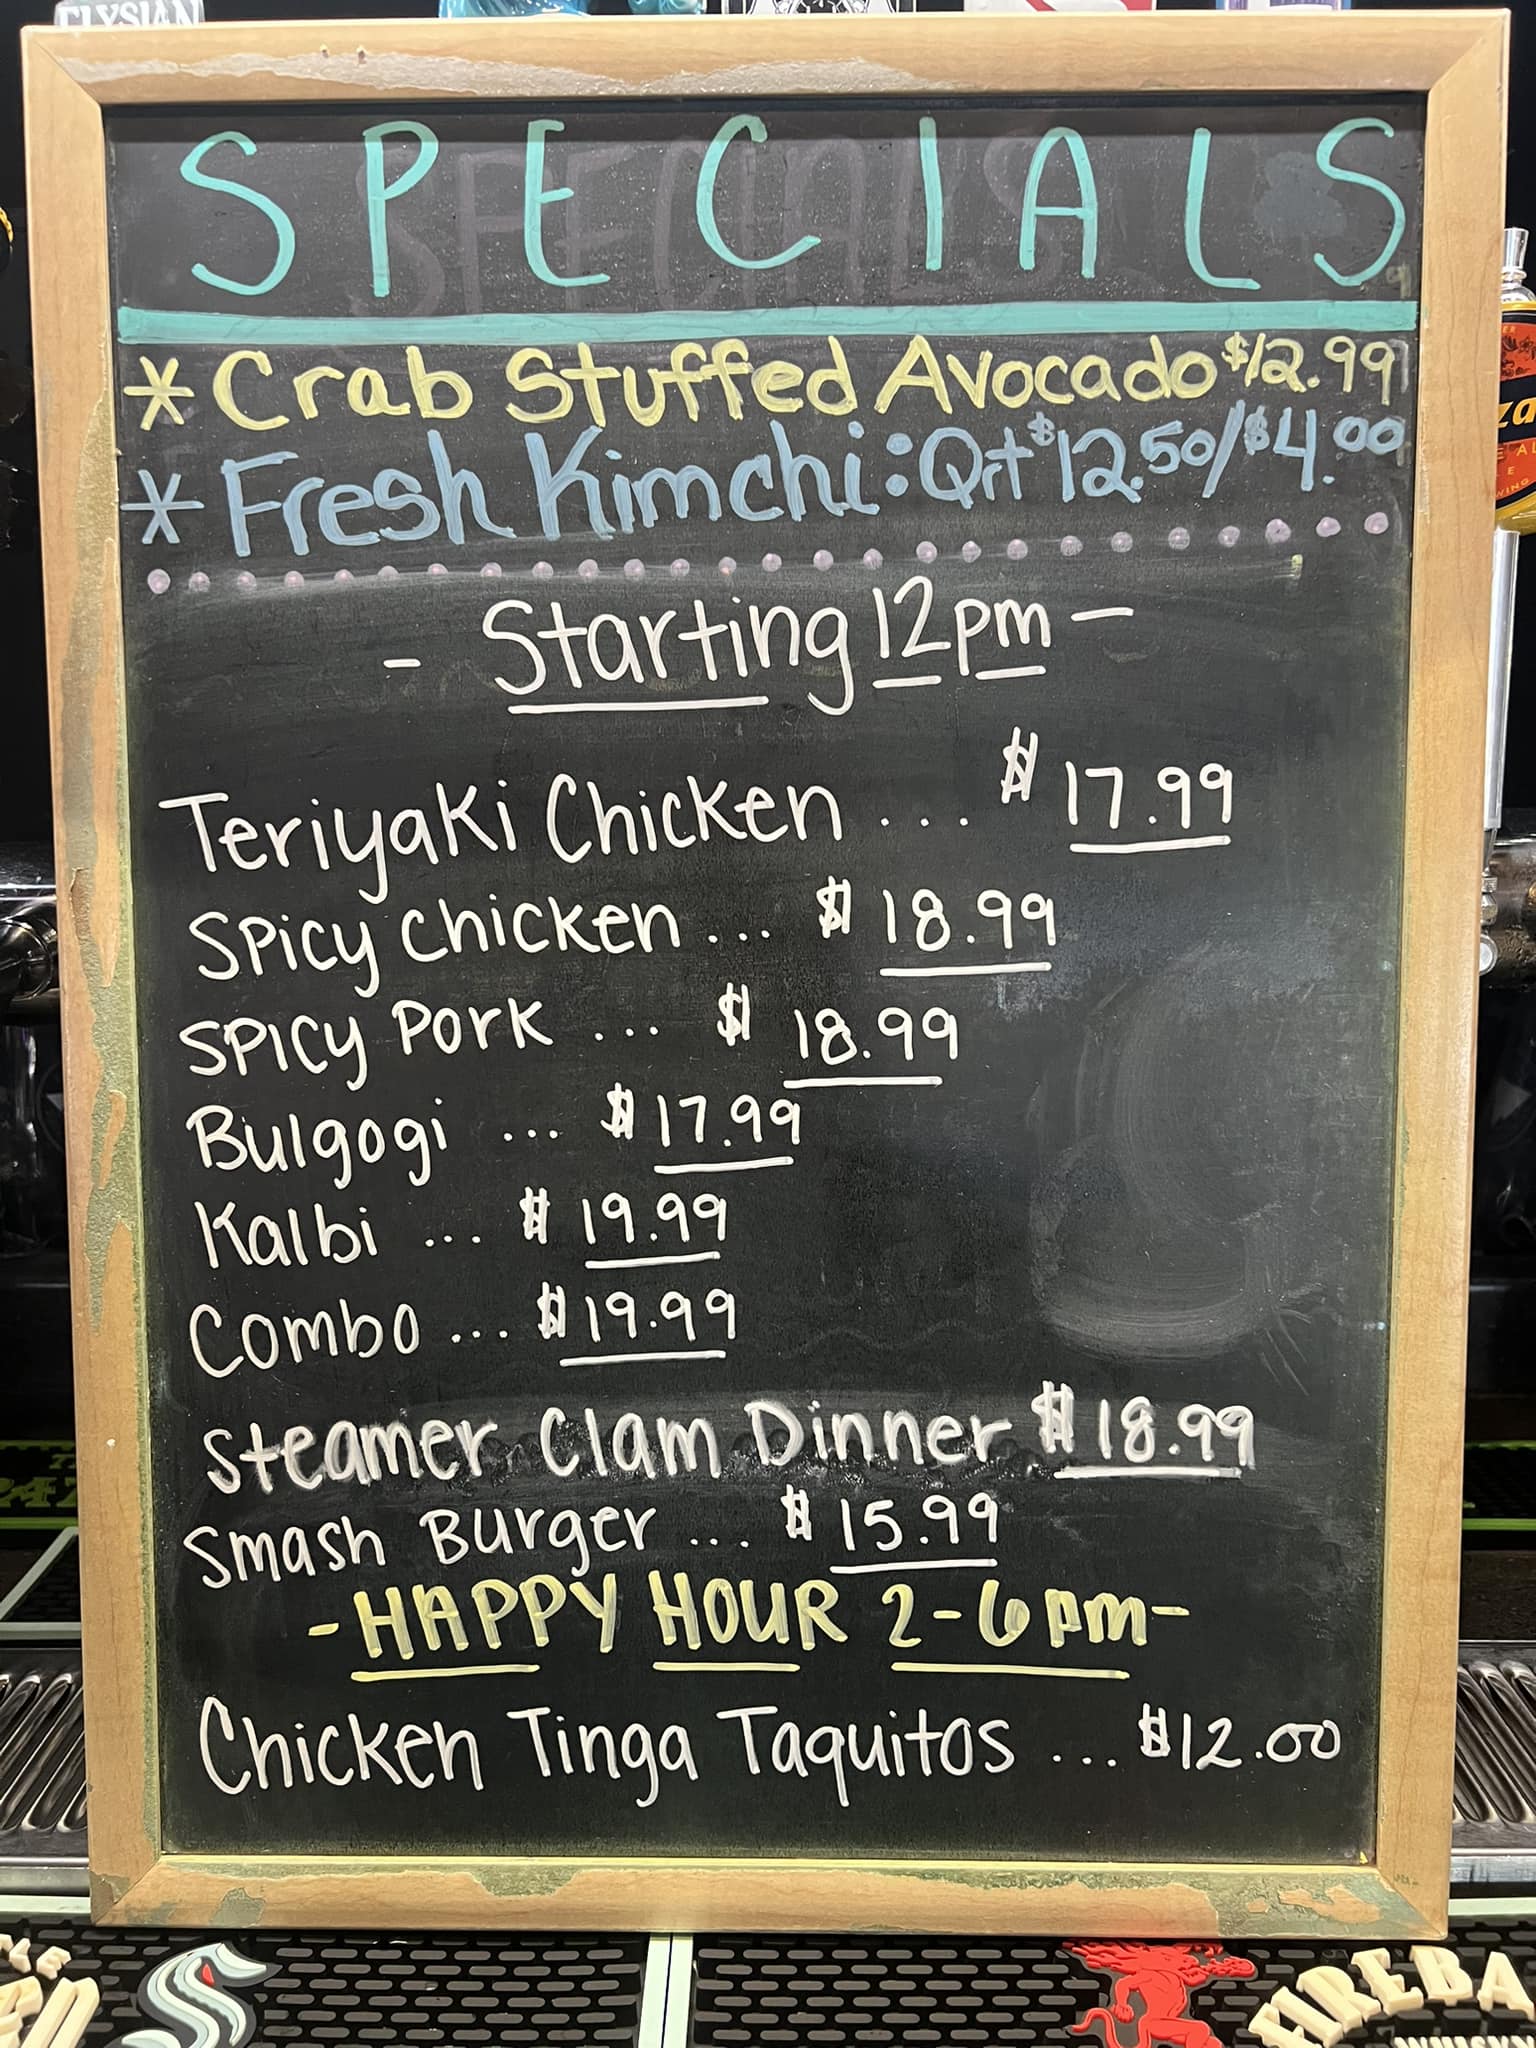 ELYSIAN
SPECIALS
* Crab Stuffed Avocado $12.99
* Fresh Kimchi: Qrt $12.50/$4.00
- Starting 12pm -
Teriyaki Chicken ... $17.99
Spicy Chicken ... $18.99
Spicy Pork ... $18.99
Bulgogi ... $17.99
Kalbi ... $19.99
Combo ... $19.99
Steamer Clam Dinner $18.99
Smash Burger ... $15.99
-HAPPY HOUR 2-6pm-
Chicken Tinga Taquitos ... $12.00
FIREBA
WHISKY